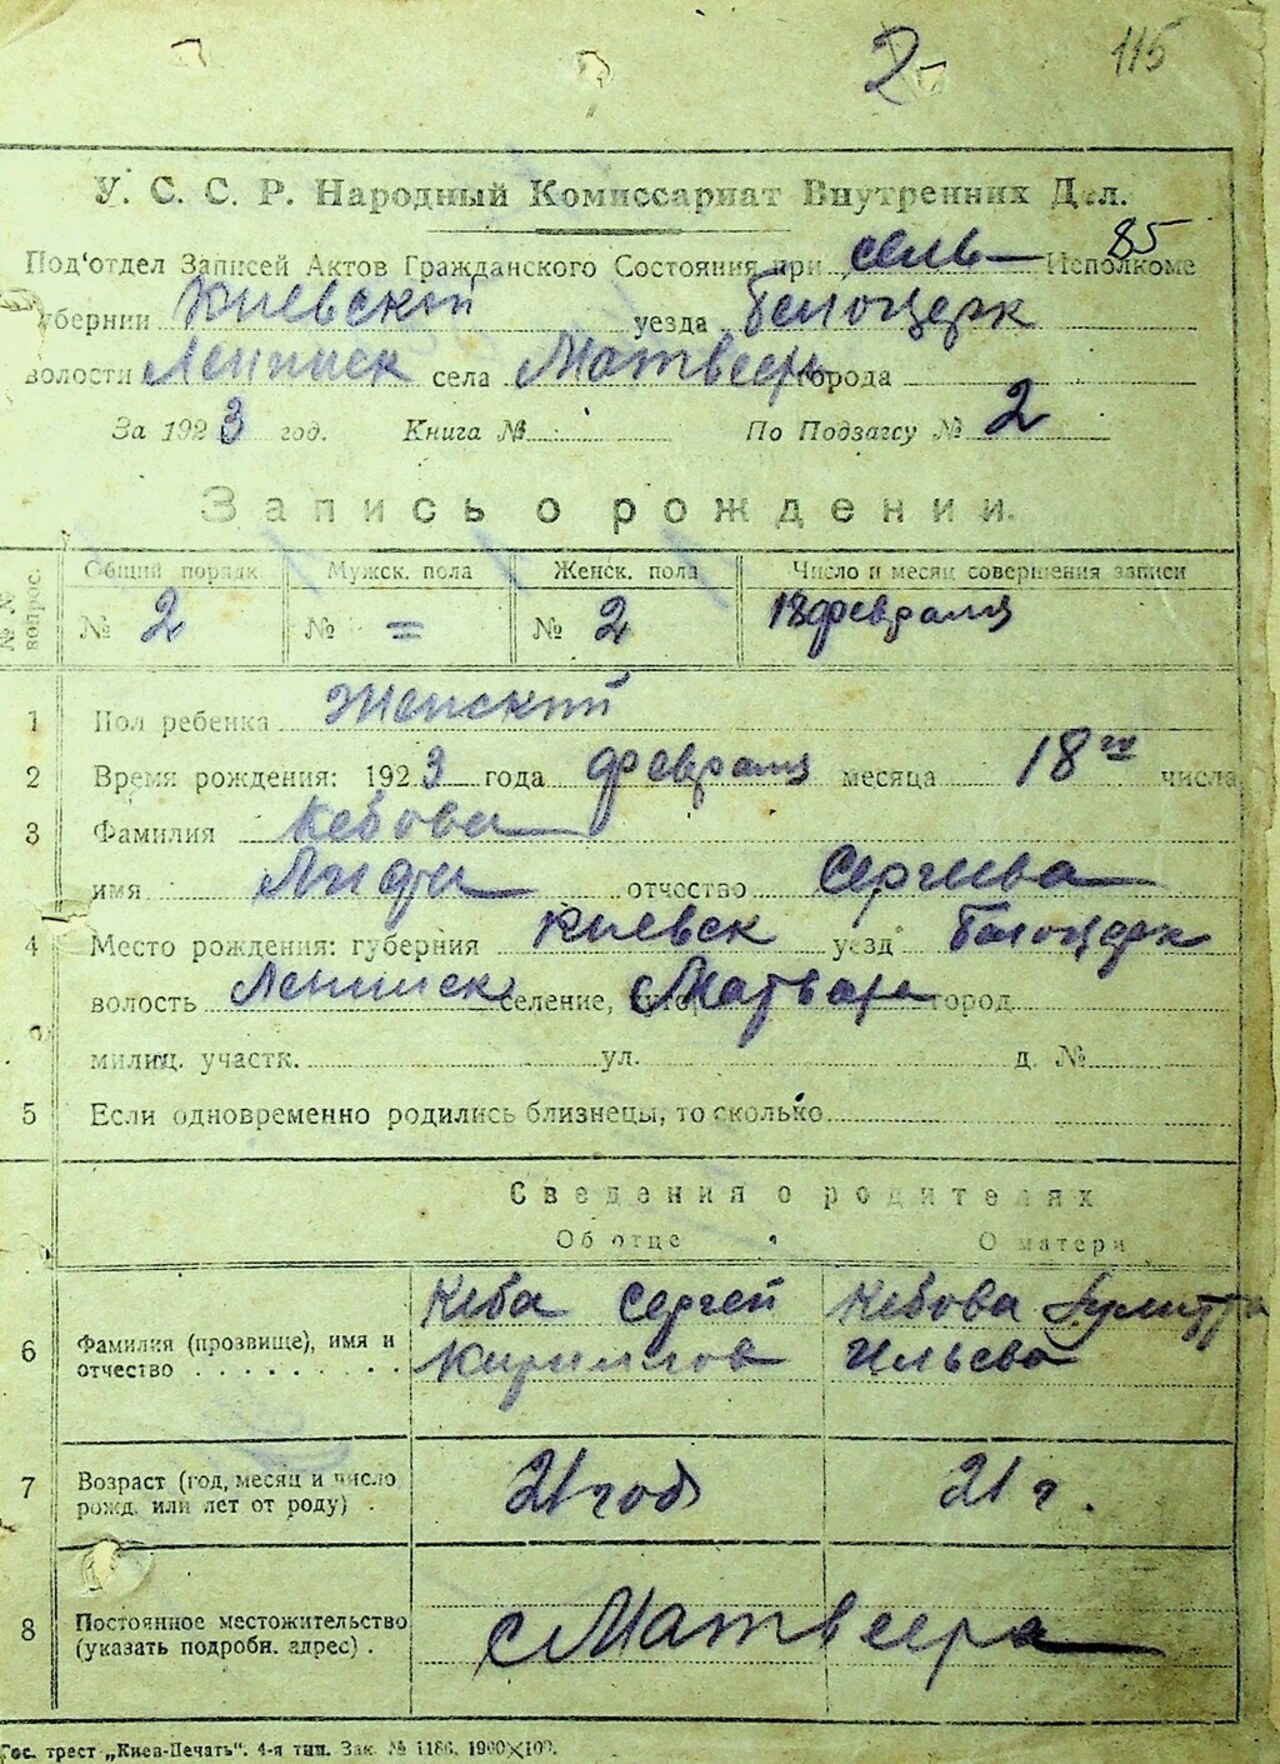 2 115
У. С. С. Р. Народный Комиссариат Внутренних Дел.
85
Под'отдел Записей Актов Гражданского Состояния при сель Исполкоме
губернии Киевской уезда Белоцерк
волости Ленинск села Матвеера города
За 1923 год. Книга № По Подзагсу № 2
Запись о рождении.
№ № вопрос. Общий порядк Мужск. пола Женск. пола Число и месяц совершения записи
№ 2 № = № 2 18 февраля
1 Пол ребенка Женский
2 Время рождения: 1923 года февраля месяца 18го числа
3 Фамилия Кебова
имя Лида отчество Сергиева
4 Место рождения: губерния Киевск уезд Белоцерк
волость Ленинск селение, хутор город
милиц. участк. ул. д. №
5 Если одновременно родились близнецы, то сколько
Сведения о родителях
Об отце О матери
6 Фамилия (прозвище), имя и отчество Кеба Сергей Кебова
Кирилов Ильева
7 Возраст (год, месяц и число рожд. или лет от роду) . 21 год 21 г.
8 Постоянное местожительство (указать подробн. адрес) . с Матвеера
Гос. трест „Киев-Печать“. 4-я тип. Зак. № 1186. 1900×100.